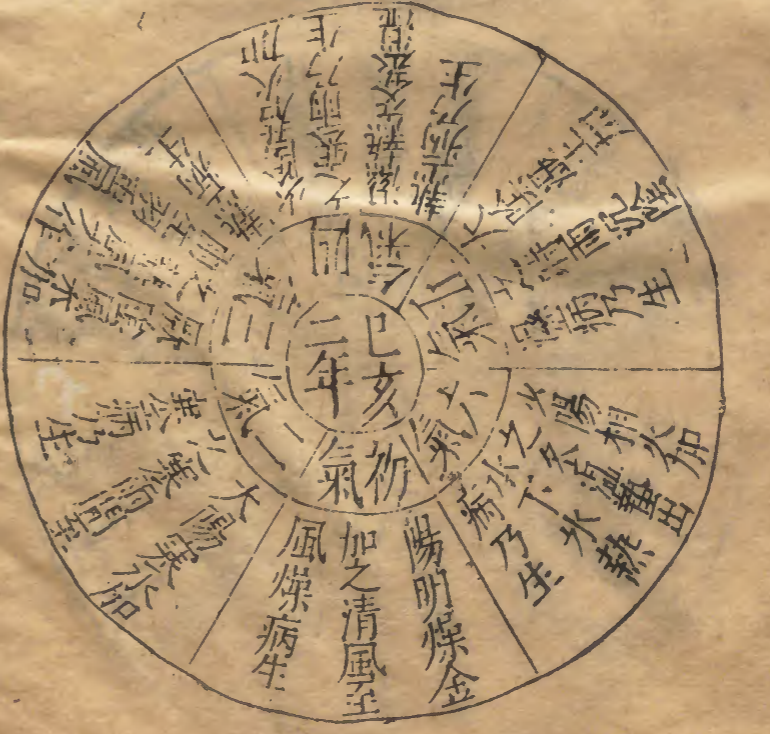 巳亥
二年
初氣
陽明燥金
加之清風至
風燥病生
二氣
太陽寒水加
之寒雨間至
病乃生
三氣
厥陰風木加
之風
熱病生
四氣
少陰君火加
之寒雨乃
濕熱交
熱病乃生
五氣
濕土加
之濕雨沉陰
濕病乃生
六氣
少陽相火加
之冬溫蟄出
水不冰熱
病乃生